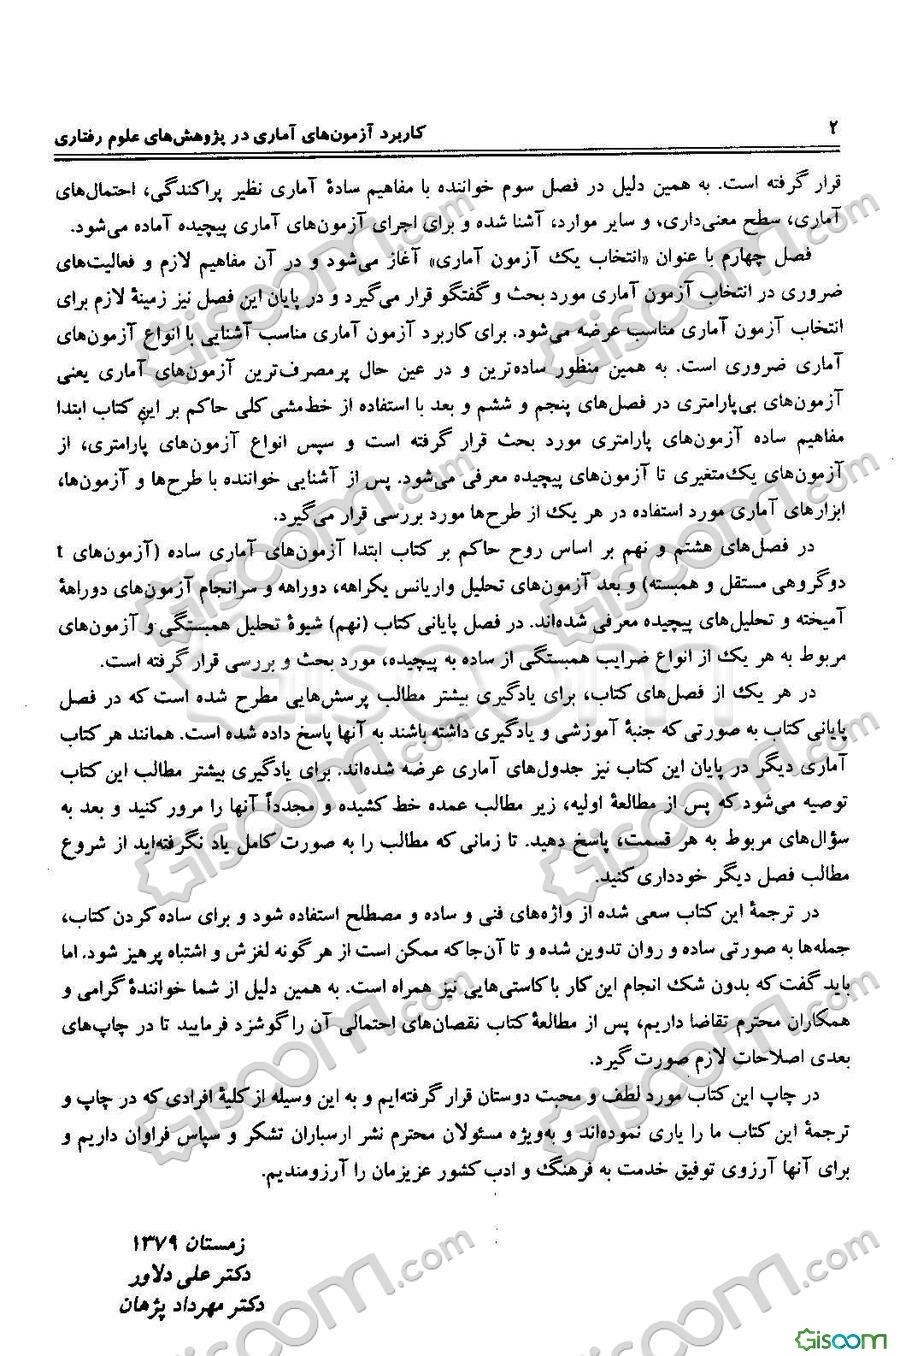 ۲
کاربرد آزمون‌های آماری در پژوهش‌های علوم رفتاری
قرار گرفته است. به همین دلیل در فصل سوم خواننده با مفاهیم سادهٔ آماری نظیر پراکندگی، احتمال‌های
آماری، سطح معنی‌داری، و سایر موارد، آشنا شده و برای اجرای آزمون‌های آماری پیچیده آماده می‌شود.
فصل چهارم با عنوان «انتخاب یک آزمون آماری» آغاز می‌شود و در آن مفاهیم لازم و فعالیت‌های
ضروری در انتخاب آزمون آماری مورد بحث و گفتگو قرار می‌گیرد و در پایان این فصل نیز زمینهٔ لازم برای
انتخاب آزمون آماری مناسب عرضه می‌شود. برای کاربرد آزمون آماری مناسب آشنایی با انواع آزمون‌های
آماری ضروری است. به همین منظور ساده‌ترین و در عین حال پرمصرف‌ترین آزمون‌های آماری یعنی
آزمون‌های بی‌پارامتری در فصل‌های پنجم و ششم و بعد با استفاده از خط‌مشی کلی حاکم بر این کتاب ابتدا
مفاهیم ساده آزمون‌های پارامتری مورد بحث قرار گرفته است و سپس انواع آزمون‌های پارامتری، از
آزمون‌های یک‌متغیری تا آزمون‌های پیچیده معرفی می‌شود. پس از آشنایی خواننده با طرح‌ها و آزمون‌ها،
ابزارهای آماری مورد استفاده در هر یک از طرح‌ها مورد بررسی قرار می‌گیرد.
در فصل‌های هشتم و نهم بر اساس روح حاکم بر کتاب ابتدا آزمون‌های آماری ساده (آزمون‌های t
دوگروهی مستقل و همبسته) و بعد آزمون‌های تحلیل واریانس یکراهه، دوراهه و سرانجام آزمون‌های دوراههٔ
آمیخته و تحلیل‌های پیچیده معرفی شده‌اند. در فصل پایانی کتاب (نهم) شیوهٔ تحلیل همبستگی و آزمون‌های
مربوط به هر یک از انواع ضرایب همبستگی از ساده به پیچیده، مورد بحث و بررسی قرار گرفته است.
در هر یک از فصل‌های کتاب، برای یادگیری بیشتر مطالب پرسش‌هایی مطرح شده است که در فصل
پایانی کتاب به صورتی که جنبهٔ آموزشی و یادگیری داشته باشند به آنها پاسخ داده شده است. همانند هر کتاب
آماری دیگر در پایان این کتاب نیز جدول‌های آماری عرضه شده‌اند. برای یادگیری بیشتر مطالب این کتاب
توصیه می‌شود که پس از مطالعهٔ اولیه، زیر مطالب عمده خط کشیده و مجدداً آنها را مرور کنید و بعد به
سؤال‌های مربوط به هر قسمت، پاسخ دهید. تا زمانی که مطالب را به صورت کامل یاد نگرفته‌اید از شروع
مطالب فصل دیگر خودداری کنید.
در ترجمهٔ این کتاب سعی شده از واژه‌های فنی و ساده و مصطلح استفاده شود و برای ساده کردن کتاب،
جمله‌ها به صورتی ساده و روان تدوین شده و تا آن‌جا که ممکن است از هر گونه لغزش و اشتباه پرهیز شود. اما
باید گفت که بدون شک انجام این کار با کاستی‌هایی نیز همراه است. به همین دلیل از شما خوانندهٔ گرامی و
همکاران محترم تقاضا داریم، پس از مطالعهٔ کتاب نقصان‌های احتمالی آن را گوشزد فرمایید تا در چاپ‌های
بعدی اصلاحات لازم صورت گیرد.
در چاپ این کتاب مورد لطف و محبت دوستان قرار گرفته‌ایم و به این وسیله از کلیهٔ افرادی که در چاپ و
ترجمهٔ این کتاب ما را یاری نموده‌اند و به‌ویژه مسئولان محترم نشر ارسباران تشکر و سپاس فراوان داریم و
برای آنها آرزوی توفیق خدمت به فرهنگ و ادب کشور عزیزمان را آرزومندیم.
زمستان ۱۳۷۹
دکتر علی دلاور
دکتر مهرداد پژهان
Gisoom